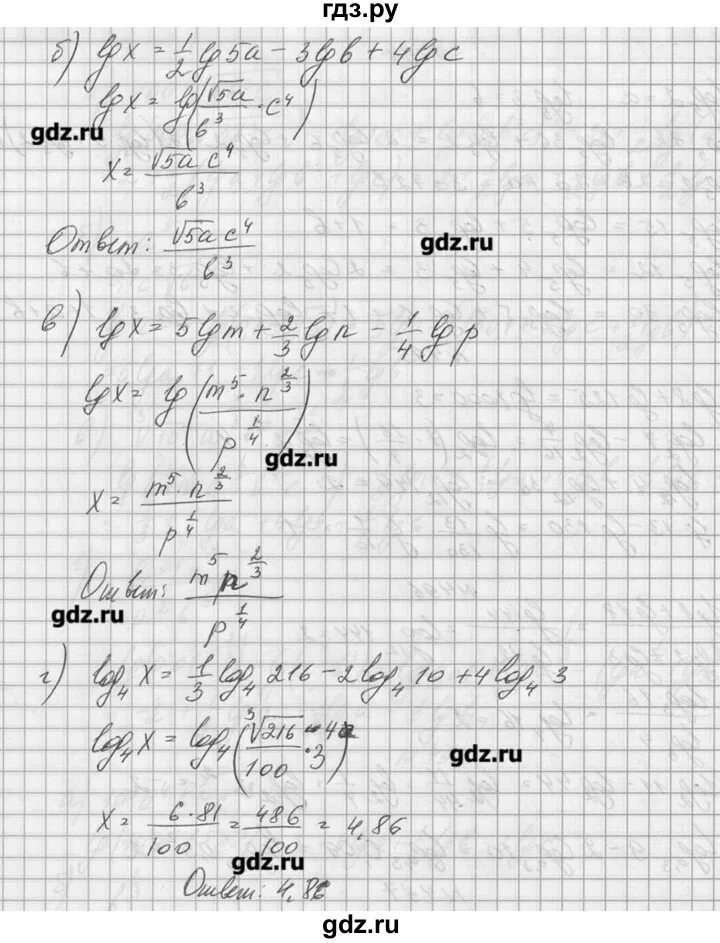 гдз.ру
б) lg x = 1/2 lg 5a − 3 lg b + 4 lg c
lg x = lg (√5a / b³ · c⁴)
gdz.ru
x = √5a c⁴ / b³
Ответ: √5a c⁴ / b³
gdz.ru
в) lg x = 5 lg m + 2/3 lg n − 1/4 lg p
lg x = lg (m⁵ · n^(2/3) / p^(1/4))
gdz.ru
x = m⁵ · n^(2/3) / p^(1/4)
Ответ: m⁵ n^(2/3) / p^(1/4)
gdz.ru
г) log₄ x = 1/3 log₄ 216 − 2 log₄ 10 + 4 log₄ 3
log₄ x = log₄ (³√216 / 100 · 3⁴)
gdz.ru
x = 6·81 / 100 = 486 / 100 = 4,86
gdz.ru
Ответ: 4,86
gdz.ru